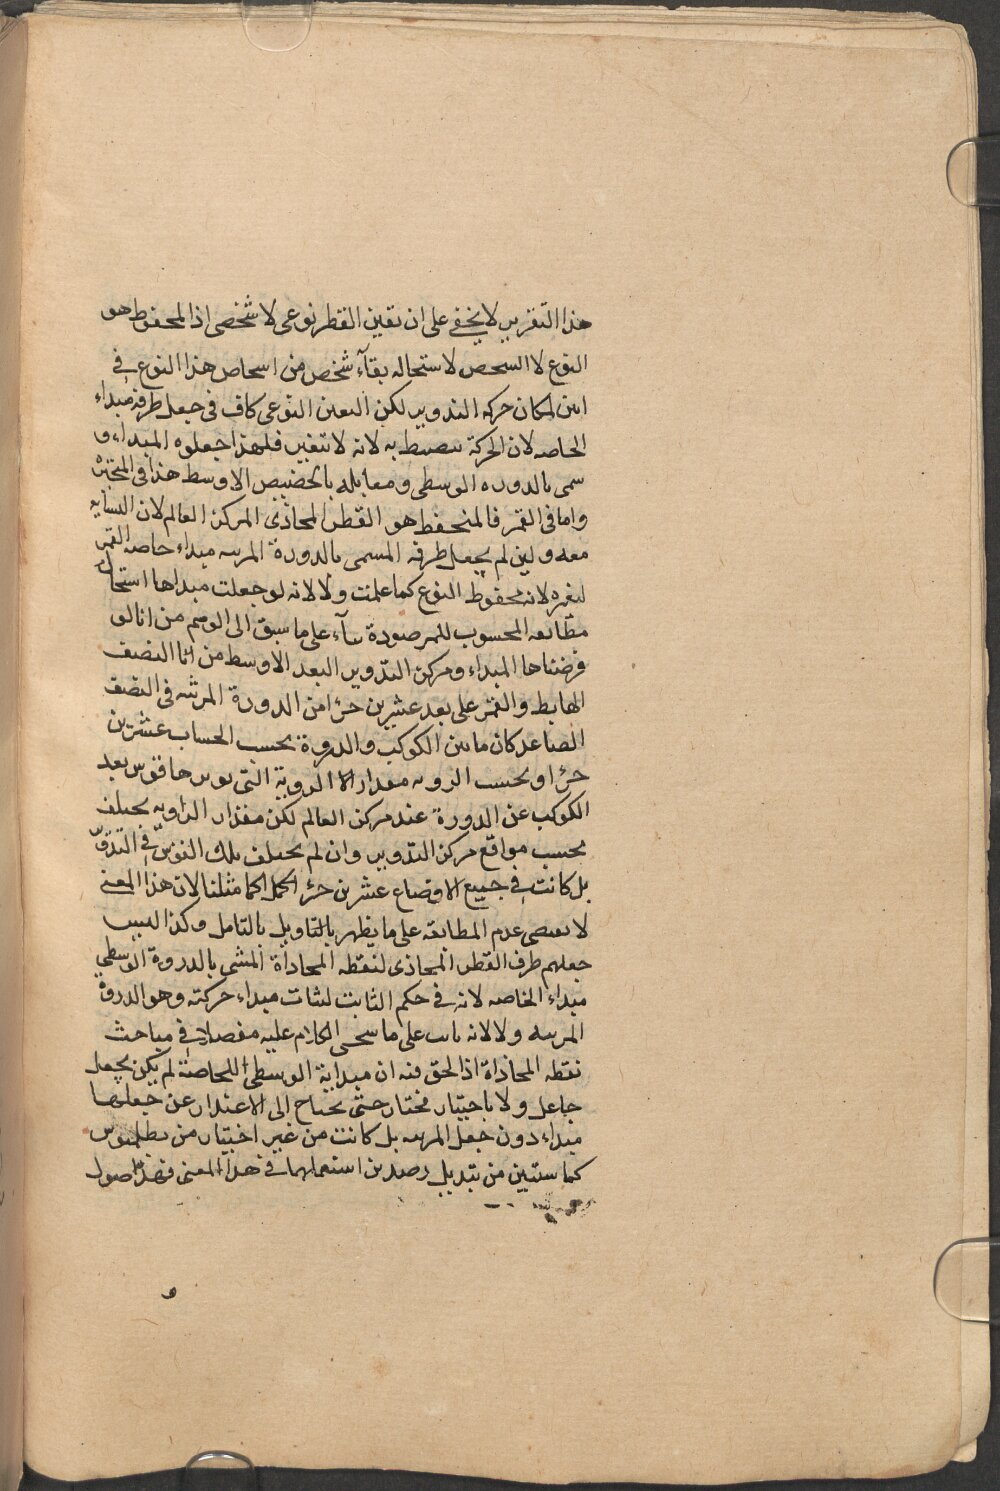 هذا التقرير لا يخفى على ان تعين القطر نوعى لا شخصى اذ المحفوظ هو
النوع لا الشخص لاستحاله بقآء شخص من اشخاص هذا النوع فى
لمكان حركه التدوير لكن التعين النوعى كاف فى جعل طرفه مبداء
الخاصه لان الحركة تنضبط به لانه لا تتغير فلهذا جعلوه المبداء و
سمى بالذوره الوسطى ومقابله بالحضيض الاوسط هذا فى المتحيره
واما فى القمر فالمنحفظ هو القطر المحاذى المركز العالم لان التشابه
معه ولين لم يجعل طرفه المسمى بالذورة المرييه مبداء خاصه القمر
لتغيره لانه محفوظ النوع كما علمت ولا لانه لو جعلت مبداها استحال
مطابقه المحسوب للمرصودة بنآء على ما سبق الى الوهم من انا لو
فرضناها المبداء ومركز التدوير البعد الاوسط من انا النصف
الهابط والقمر على بعد عشرين جزءا من الدورة المرئيه فى النصف
الصاعد كان ما بين الكوكب والذروة بحسب الحساب عشرين
جزءا وبحسب الرويه مقدار الا الزوية التى يوترها قوس بعد
الكوكب عن الدورة عند مركز العالم لكن مقدار الزاويه يختلف
بحسب مواقع مركز التدوير وان لم يختلف تلك القوس فى التدوير
بل كانت فى جميع الاوضاع عشرين جزءا كما مثلنا لان هذا المعنى
لا يقتضى عدم المطابقه على ما يظهر بالتاويل بالتامل وكذا ليس
جعلهم طرف القطر المحاذى لنقطه المحاذاة المسمى بالدروة الوسطى
مبداء الخاصه لانه فى حكم الثابت لثبات مبداء حركته وهو الدروة
المرييه ولا لانه ثابت على ما سيجى الكلام عليه مفصلا فى مباحث
نقطه المحاذاة اذ الحق فيه ان مبداية الوسطى للخاصة لم يكن بجعل
جاعل ولا باختيار مختار حتى يحتاج الى الاعتذار عن جعلها
مبداء دون جعل المرييه بل كانت من غير اختيار من بطلميوس
كما ستبين من تبديل رصدين استعملهما فى هذا المعنى فهذه اصول
و